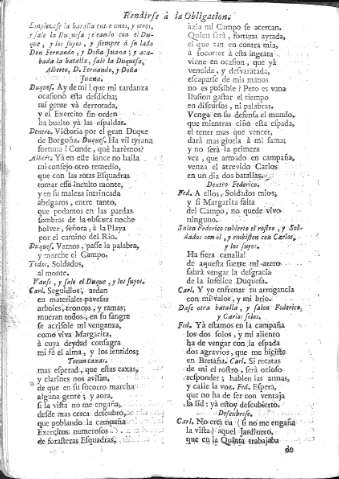 Rendirse à la Obligacion.
Empiezase la batalla entre unos, y otros,
y sale la Duquesa peleando con el Du-
que, y los suyos, y siempre à su lado
Don Fernando, y Doña Juana; y aca-
bada la batalla, sale la Duquesa,
Alberto, D. Fernando, y Doña
Juana.
Duques. Ay de mi! que mi tardanza
ocasionó esta desdicha;
mi gente và derrotada,
y el Exercito sin orden
ha buelto ya las espaldas.
Dentro. Victoria por el gran Duque
de Borgoña. Duques. Ha vil tyrana
fortuna! Conde, què harèmos?
Alberto. Yà en este lance no halla
mi consejo otro remedio,
que con las rotas Esquadras
tomar esse inculto monte,
y en su maleza intrincada
abrigaros, entre tanto,
que podamos en las pardas
sombras de la obscura noche
bolver, señora, à la Playa
por el camino del Rio.
Duques. Vamos, passe la palabra,
y marche el Campo.
Todos. Soldados,
al monte.
Vanse, y sale el Duque, y los suyos.
Carl. Seguidlos, ardan
en materiales pavesas
arboles, troncos, y ramas;
mueran todos, en su sangre
se acrisole mi venganza,
como viva Margarita,
à cuya deydad consagra
mi fè el alma, y los sentidos;
Tocan caxas.
mas esperad, que estas caxas,
y clarines nos avisan,
de que en su socorro marcha
alguna gente; y aora,
si la vista no me engaña,
desde mas cerca descubro,
que poblando la campaña
Exercitos numerosos
de forasteras Esquadras,
àzia mi Campo se acercan.
Quien serà, fortuna ayrada,
el que tan en contra mia,
à socorrer à esta ingrata
viene en ocasion, que yà
vencida, y desvaratada,
escaparse de mis manos
no es possible? Pero es vana
ilusion gastar el tiempo
en discursos, ni palabras.
Venga en su defensa el mundo,
que mientras ciño esta espada,
el temer mas que vencer,
darà mas gloria à mi fama;
y no serà la primera
vez, que armado en campaña,
venza el atrevido Carlos
en un dia dos batallas.
Dentro Federico.
Fed. A ellos, Soldados mios,
y si Margarita falta
del Campo, no quede vivo
ninguno.
Salen Federico cubierto el rostro, y Sol-
dados con èl, y embisten con Carlos,
y los suyos.
Ha fiera canalla!
de aquesta suerte mi azero
sabrà vengar la desgracia
de la infelice Duquesa.
Carl. Y yo enfrenar tu arrogancia
con mi valor, y mi brio.
Dase otra batalla, y salen Federico,
y Carlos solos.
Fed. Yà estamos en la campaña
los dos solos, y mi aliento
ha de vengar con la espada
dos agravios, que me hiciste
en Bretaña. Carl. Si recatas
de mi el rostro, serà ocioso
responder; hablen las armas,
y calle la voz. Fed. Espera,
que no ha de ser con ventaja
la lid: yà estoy descubierto.
Descubrese.
Carl. No eres tu (si no me engaña
la vista) aquel Jardinero,
que en la Quinta trabajaba
do